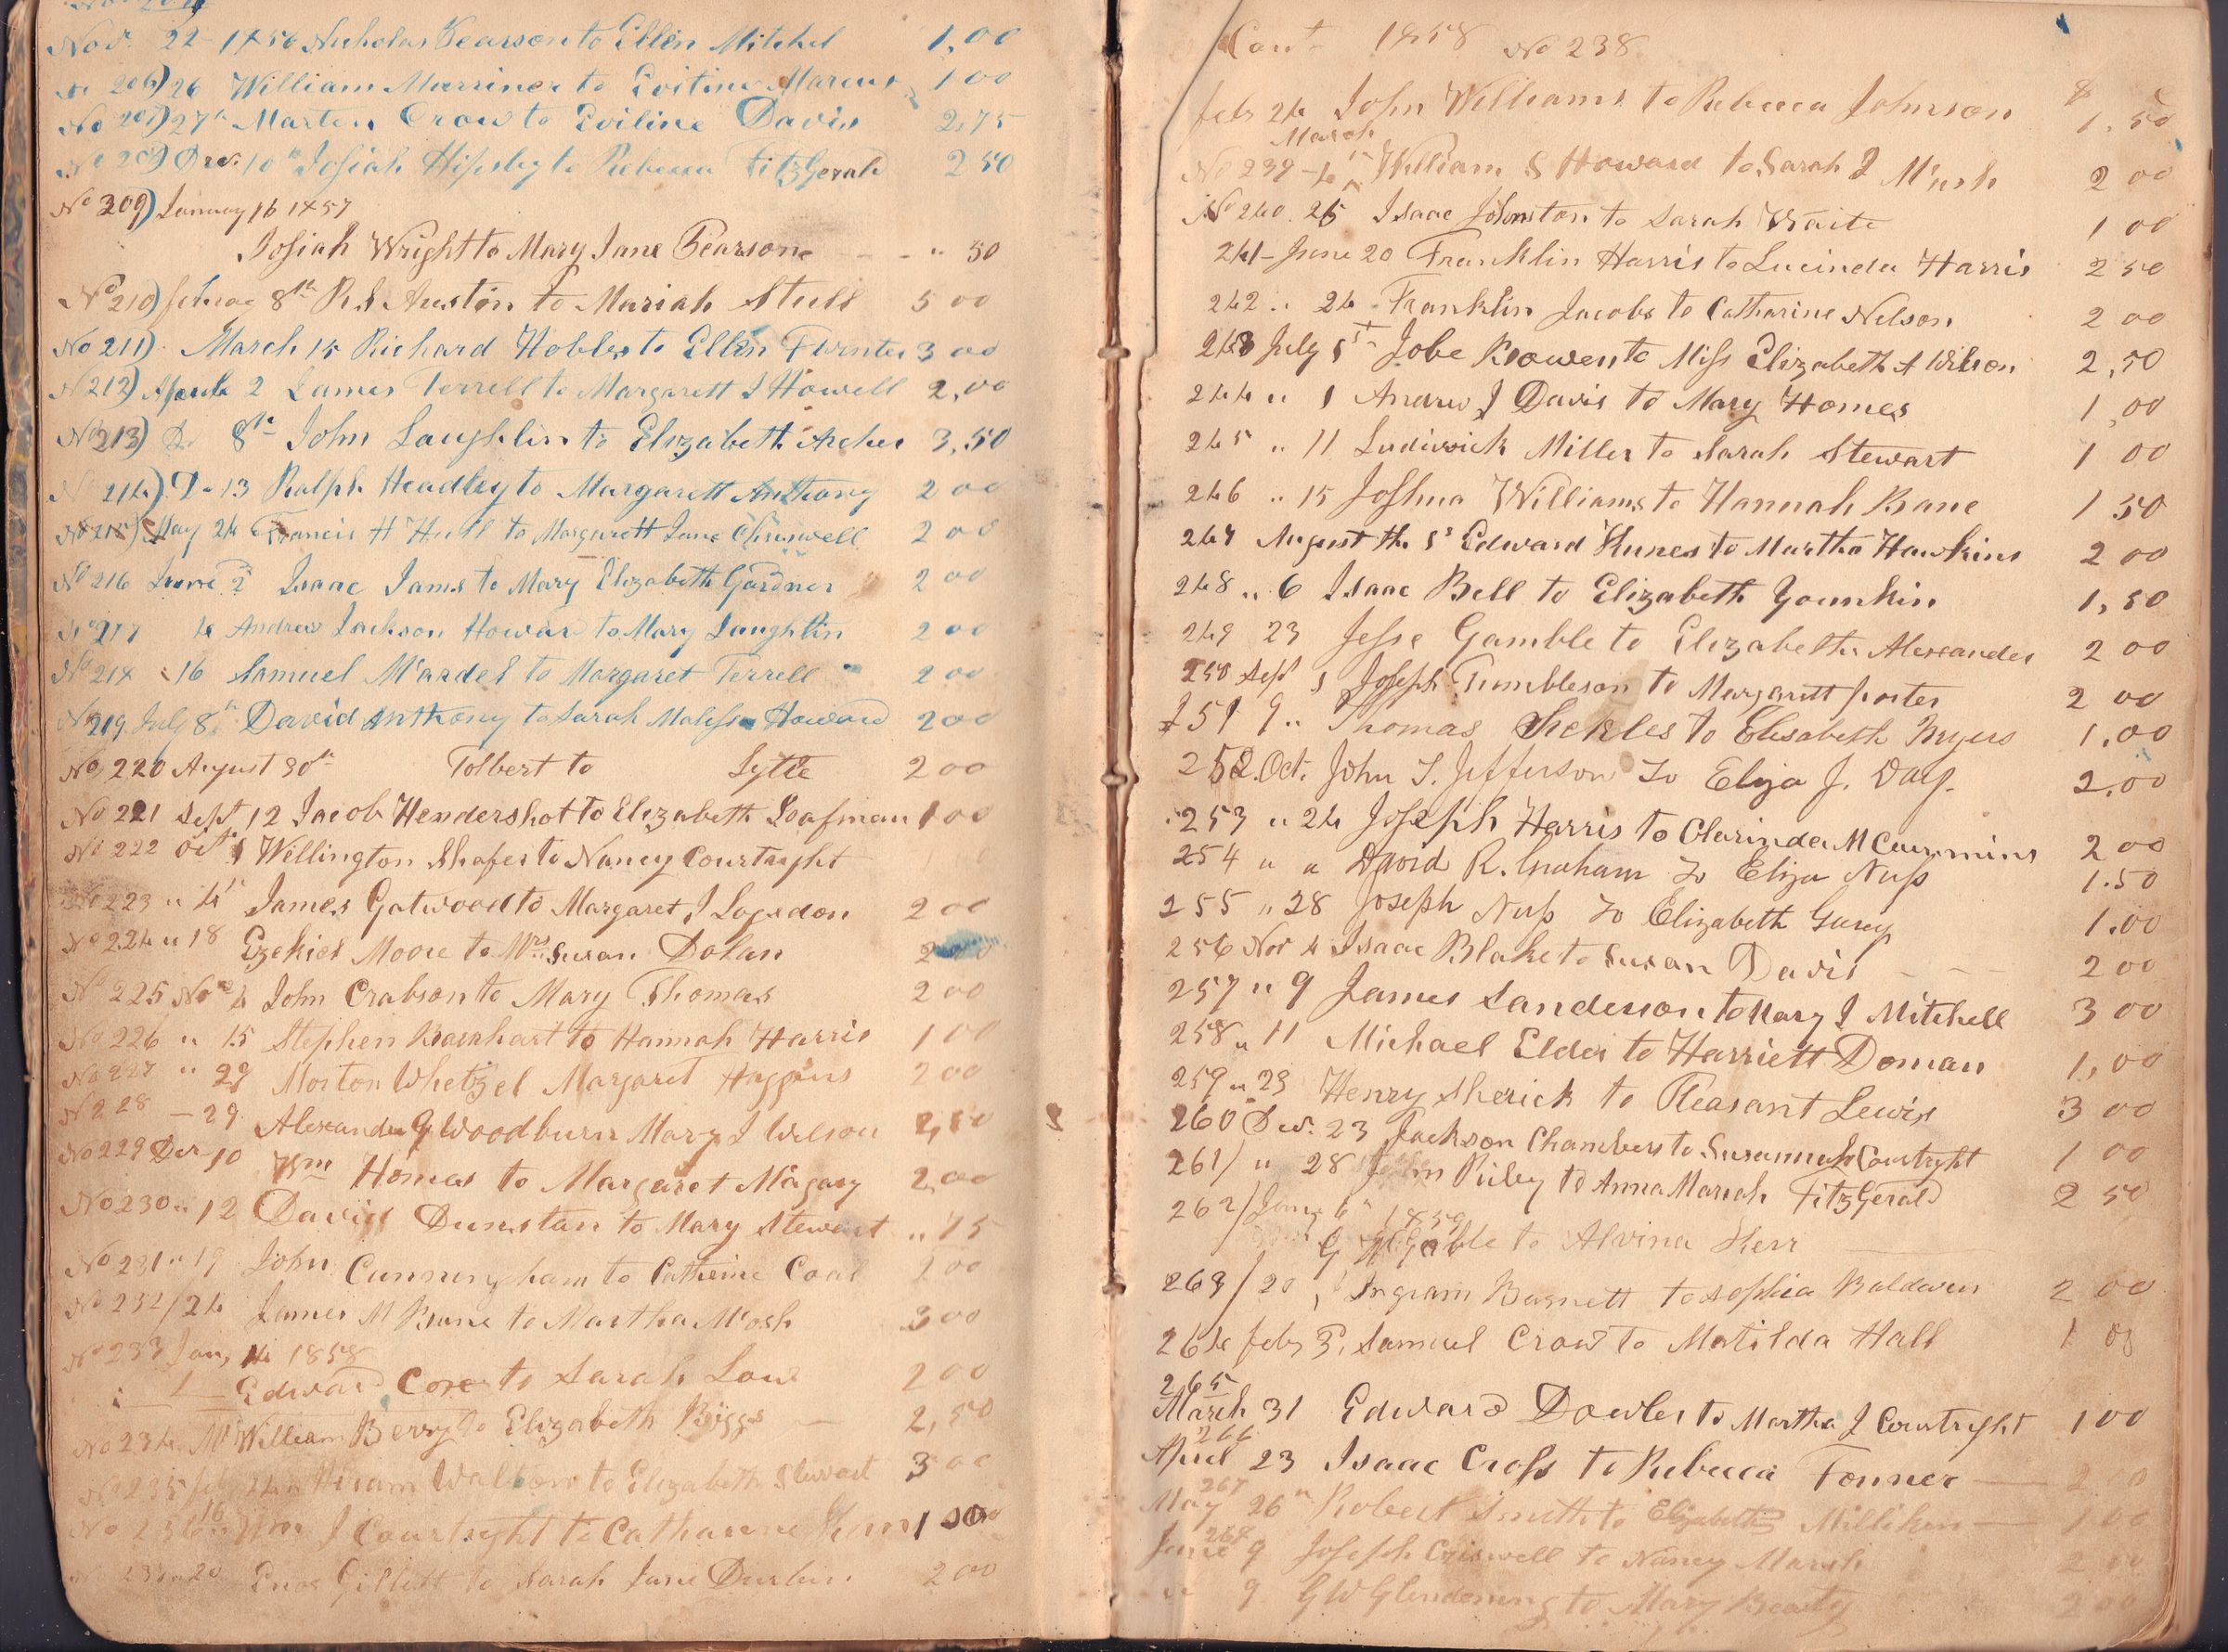 Nov. 22 1856 Nicholas Pearson to Ellen Mitchel 1,00
No 206) 26 William Marriner to Marcus 1 00
No 207) 27th Marten Crow to Eviline Davis 2,75
No 208) Dec. 10th Josiah Hipsley to Rebecca FitzGerald 2 50
No 209) January 16 1857
Josiah Wright to Mary Jane Pearson - - - " 50
No 210) 8th R.S Austin to Mariah Stull 5 00
No 211) March 15 Richard Hobbs to Ellen 3 00
No 212) 2 James Terrell to Margarett J Howell 2,00
No 213) Do 8th John Laughlin to Elizabeth Archer 3,50
No 214) Do 13 Ralph Headley to Margarett Anthony 2 00
No 215) May 24 Francis H Hull to Margarett Jane 2 00
No 216 June 2 Isaac Iams to Mary Elizabeth Gardner 2 00
No 217 4 Andrew Jackson Howard to Mary Laughlin 2 00
No 218 16 Samuel McArdel to Margaret Terrell 2 00
No 219 July 8th David Anthony to Sarah Malissa Howard 2 00
No 220 August 30th Tolbert to Lytle 2 00
No 221 Sept 12 Jacob Hendershot to Elizabeth Loafman 1 00
No 222 Oct 1 Wellington Shafer to Nancy Courtright
No 223 " 4th James Gatwood to Margaret J Logsdon 2 00
No 224 " 18 Ezekiel Moore to Mrs Susan Dolan 2 00
No 225 Nov 4 John Crabson to Mary Thomas 2 00
No 226 " 15 Stephen Barnhart to Hannah Harris 1 00
No 227 " 29 Morton Whetzel Margaret Haggins 2 00
No 228 - 29 Alexander G Woodburn Mary J Wilson 2,50
No 229 Dec 10 Wm Homes to Margaret Magary 2,00
No 230 " 12 David Dunstan to Mary Stewart " 75
No 231 " 19 John Cunningham to Catherine Coal 2 00
No 232 / 24 James M Bane to Martha McCosh 3 00
No 233 Jan, 14 1858
Edward Core to Sarah Low 2 00
No 234 William Berry to Elizabeth Biggs 2,50
No 235 Hiram Walton to Elizabeth Stewart 3 00
No 236 16 Wm J Courtright to Catharine 1 50
20 Enos Gillett to Sarah Jane Durbin 2 00
Cont 1858 No 238
Feb 24 John Williams to Rebecca Johnson $ 1.50
March
No 239 - 4th William S Howard to Sarah J 2 00
No 240. 25 Isaac Johnston to Sarah Waite 1 00
241 - June 20 Franklin Harris to Lucinda Harris 2 50
242 " 24 Franklin Jacobs to Catharine Nelson 2 00
243 July 1st Jobe Bowen to Miss Elizabeth A Wilson 2,50
244 " 1 Andrew J Davis to Mary Homes 1,00
245 " 11 Ludiwick Miller to Sarah Stewart 1 00
246 " 15 Joshua Williams to Hannah Bane 1 50
247 August the 1st Edward to Martha Hawkins 2 00
248 " 6 Isaac Bell to Elizabeth Younkin 1,50
249 23 Jesse Gamble to Elizabeth Alexander 2 00
250 Sept 1 Joseph Tumbleson to Margarett Porter 2 00
251 9 " Thomas Sickles to Elisabeth Myers 1.00
252. Oct. John T. Jefferson To Eliza J. Day. 2.00
253 " 24 Joseph Harris to Clarinda McCummins 2 00
254 " " David R. Graham To Eliza Nuss 1.50
255 " 28 Joseph Nuss To Elizabeth 1.00
256 Nov 4 Isaac Blake to Susan Davis - - - 2 00
257 " 9 James Sanderson to Mary J Mitchell 3 00
258 " 11 Michael Elder to Harriett Doman 1,00
259 " 23 Henry Sherick to Pleasant Lewis 3 00
260 Dec. 23 Jackson Chambers to Susannah Courtright 1 00
261/ " 28 John Riley to Anna Mariah FitzGerald 2 50
262/ 1859
G W Gable to Alvina Kerr
263/20, Ingram Barnett to Sophia Baldwin 2 00
264 Feb 3, Samuel Crow to Matilda Hall 1 00
265
March 31 Edward Dowler to Martha J Courtright 1 00
266
April 23 Isaac Cross to Rebecca Fonner 2 0
267
May 26th Robert Smith to Elizabeth Milliken 1 00
268
June 9 Joseph Criswell to Nancy Marsh 2 00
" 9 G W Glendening to Mary Beaty 2 00